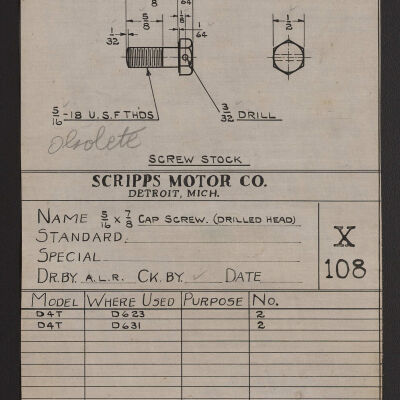 8
64
5/8
1/8
1/32
1/64
1/2
5/16-18 U.S.F. TH'DS
3/32 DRILL
Obsolete
SCREW STOCK
SCRIPPS MOTOR CO.
DETROIT, MICH.
NAME 5/16 x 7/8 CAP SCREW. (DRILLED HEAD)
STANDARD
SPECIAL
X 108
DR.BY. A.L.R. CK.BY. ✓ DATE
MODEL WHERE USED PURPOSE NO.
D4T D623 2
D4T D631 2